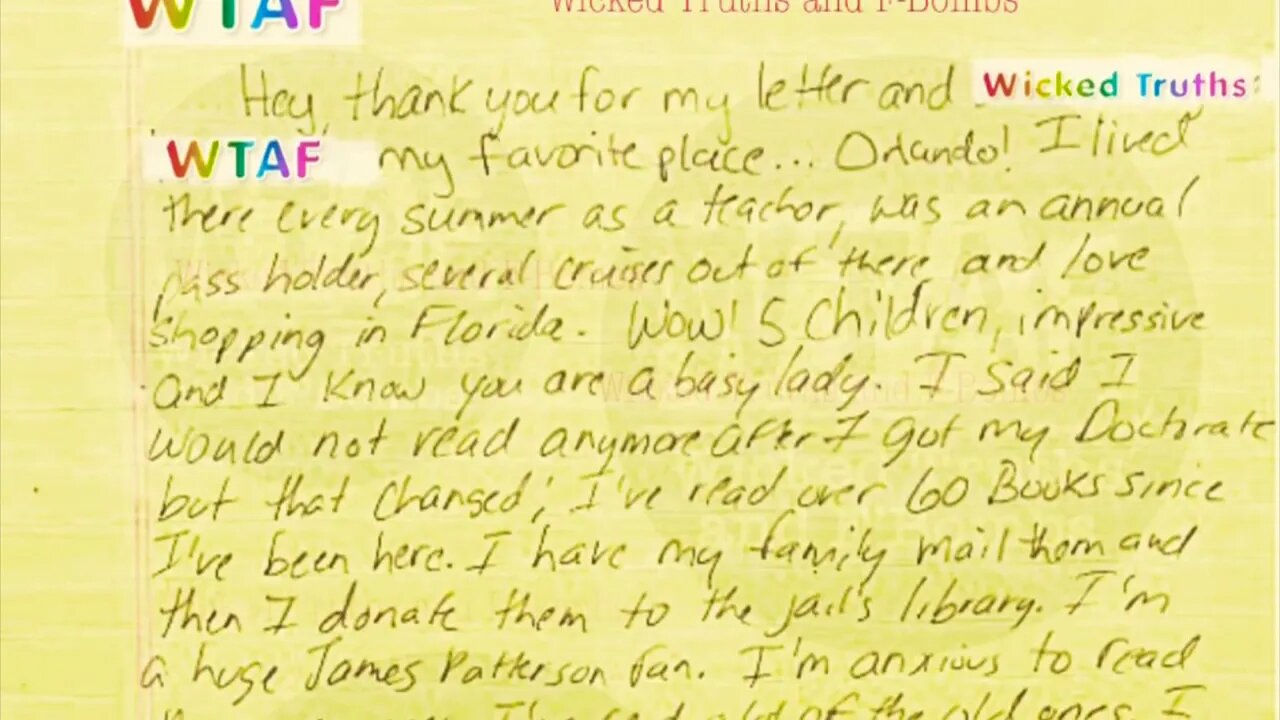 WTAF Wicked Truths and F-Bombs
Hey, thank you for my letter and Wicked Truths
WTAF my favorite place... Orlando! I lived
there every summer as a teachor, was an annual
pass holder, several cruises out of there and love
shopping in Florida. Wow! 5 Children, impressive
and I know you are a busy lady. I said I
would not read anymore after I got my Doctorate
but that changed; I've read over 60 Books since
I've been here. I have my family mail them and
then I donate them to the jail's library. I'm
a huge James Patterson fan. I'm anxious to read
I've read a lot of the old ones. I